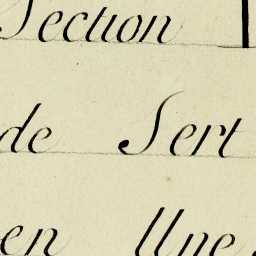 Section
de Sert
en Une